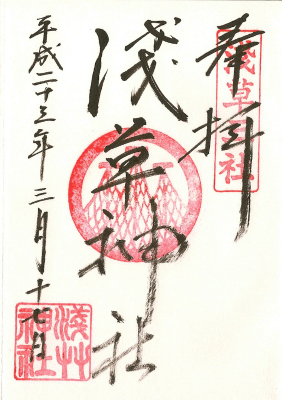 奉拝
浅草神社
浅草神社
平成二十三年三月十七日
浅草神社